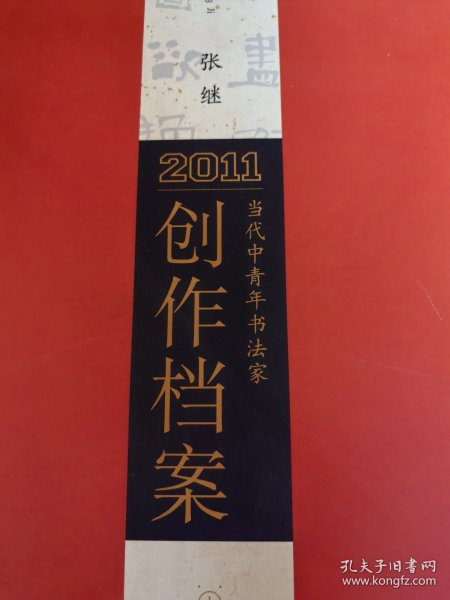 张继
2011
当代中青年书法家
创作档案
孔夫子旧书网
www.kongfz.com